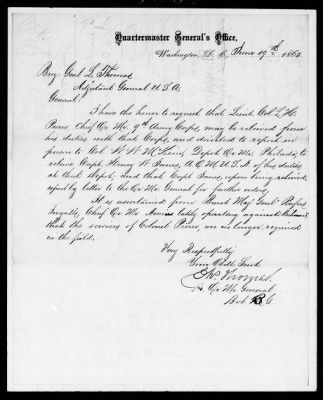 Quartermaster General's Office,
Washington, D. C. June 19th 1865.
Brig. Genl L. Thomas
Adjutant General U.S.A.
General:
I have the honor to request that Lieut Col L. H.
Peirce Chief Qr Mr. 9th Army Corps, may be relieved from
his duties with that Corps, and ordered to report in
person to Col W. W. McKim, Depot Qr Mr Philada, to
relieve Capt Henry W. Janes, A.Q.M. U.S.A. of his duties
at that Depot, and that Capt Janes, upon being relieved,
report by letter to the Qr Mr General for further orders.
It is ascertained from Brevet Maj Genl Rufus
Ingalls, Chief Qr Mr Armies lately operating against Richmond
that the services of Colonel Peirce, are no longer required
in the field.
Very Respectfully
Your Obdt Servt
Thomas,
A. Qr Mr General
Bvt B. G.